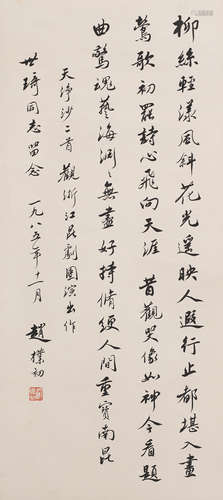 柳絲輕漾風斜花光遥映人遐行止都堪入畫
鶯歌初罷詩心飛向天涯 昔觀哭像如神今看題
曲驚魂藝海渊〻無盡好持脩綆人間重寶南昆
天净沙二首 觀浙江昆劇團演出作
世琦同志留念 一九八五年十一月 趙樸初